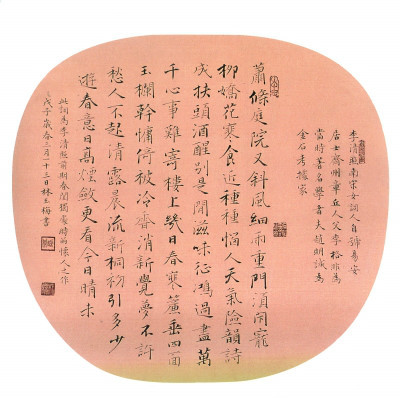 李清照南宋女詞人自號易安
居士齊州章丘人父李格非為
當時著名學者夫趙明誠為
金石考據家
蕭條庭院又斜風細雨重門須閉寵
柳嬌花寒食近種種惱人天氣險韻詩
成扶頭酒醒別是閒滋味征鴻過盡萬
千心事難寄樓上幾日春寒簾垂四面
玉欄幹慵倚被冷香消新覺夢不許
愁人不起清露晨流新桐初引多少
遊春意日高煙斂更看今日晴未
此詞為李清照前期春閨獨處時的懷人之作
戊子歲春三月二十三日林玉梅書